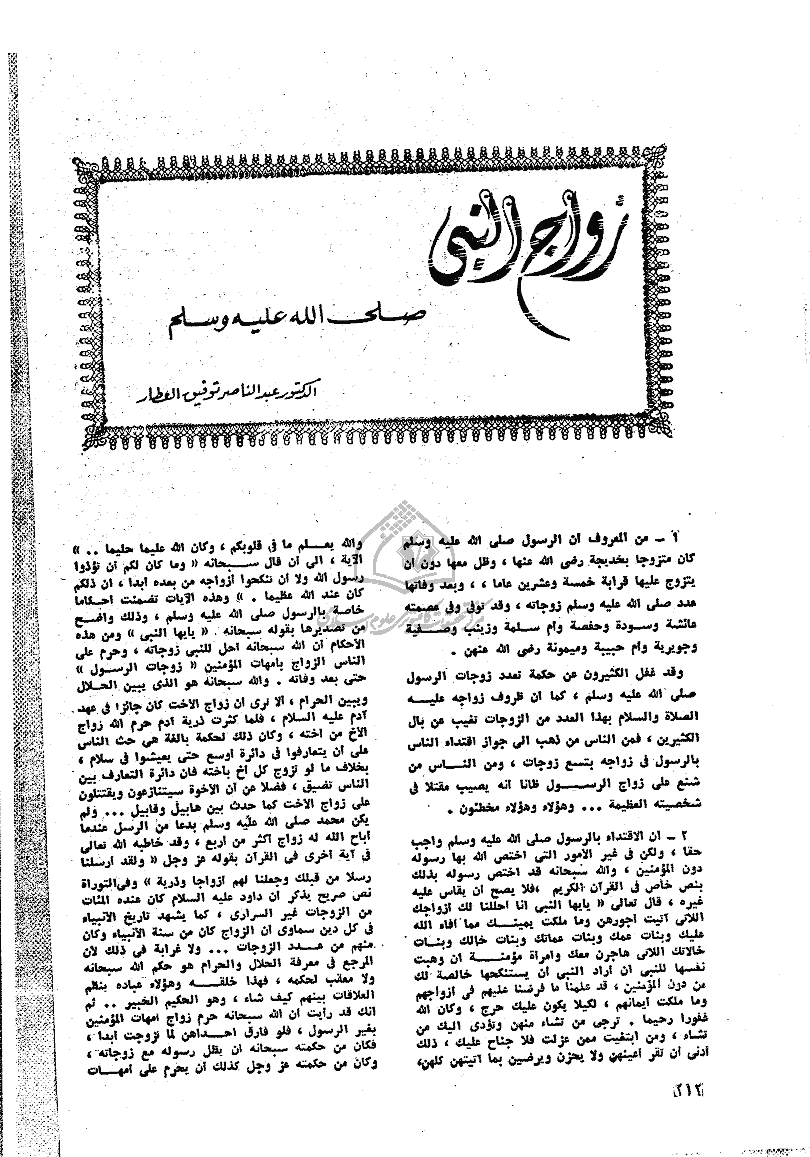 زواج النبى
صلى الله عليه وسلم
الدكتور عبد الناصر توفيق العطار
١ - من المعروف ان الرسول صلى الله عليه وسلم
كان متزوجا بخديجة رضى الله عنها ، وظل معها دون ان
يتزوج عليها قرابة خمسة وعشرين عاما ، ، وبعد وفاتها
عدد صلى الله عليه وسلم زوجاته ، وقد توفى وفى عصمته
عائشة وسودة وحفصة وام سلمة وزينب وصفية
وجويرية وام حبيبة وميمونة رضى الله عنهن .
وقد غفل الكثيرون عن حكمة تعدد زوجات الرسول
صلى الله عليه وسلم ، كما ان ظروف زواجه عليه
الصلاة والسلام بهذا العدد من الزوجات تغيب عن بال
الكثيرين ، فمن الناس من ذهب الى جواز اقتداء الناس
بالرسول فى زواجه بتسع زوجات ، ومن الناس من
شنع على زواج الرسول ظانا انه يصيب مقتلا فى
شخصيته العظيمة ... وهؤلاء وهؤلاء مخطئون .
٢ - ان الاقتداء بالرسول صلى الله عليه وسلم واجب
حقا ، ولكن فى غير الامور التى اختص الله بها رسوله
دون المؤمنين ، والله سبحانه قد اختص رسوله بذلك
بنص خاص فى القرآن الكريم ، فلا يصح ان يقاس عليه
غيره ، قال تعالى « يايها النبى انا احللنا لك ازواجك
اللاتى آتيت اجورهن وما ملكت يمينك مما افاء الله
عليك وبنات عمك وبنات عماتك وبنات خالك وبنات
خالاتك اللاتى هاجرن معك وامرأة مؤمنة ان وهبت
نفسها للنبى ان اراد النبى أن يستنكحها خالصة لك
من دون المؤمنين ، قد علمنا ما فرضنا عليهم فى ازواجهم
وما ملكت ايمانهم ، لكيلا يكون عليك حرج ، وكان الله
غفورا رحيما . ترجى من تشاء منهن وتؤوى اليك من
تشاء ، ومن ابتغيت ممن عزلت فلا جناح عليك ، ذلك
أدنى أن تقر أعينهن ولا يحزن ويرضين بما آتيتهن كلهن،
والله يعلم ما فى قلوبكم ، وكان الله عليما حليما .. »
الآية ، الى أن قال سبحانه « وما كان لكم أن تؤذوا
رسول الله ولا ان تنكحوا ازواجه من بعده ابدا ، ان ذلكم
كان عند الله عظيما . » وهذه الآيات تضمنت احكاما
خاصة بالرسول صلى الله عليه وسلم ، وذلك واضح
من تصديرها بقوله سبحانه . « يايها النبى » ومن هذه
الأحكام أن الله سبحانه احل للنبى زوجاته ، وحرم على
الناس الزواج بامهات المؤمنين « زوجات الرسول »
حتى بعد وفاته . والله سبحانه هو الذى يبين الحلال
ويبين الحرام ، الا نرى ان زواج الأخت كان جائزا فى عهد
آدم عليه السلام ، فلما كثرت ذرية آدم حرم الله زواج
الأخ من اخته ، وكان ذلك لحكمة بالغة هى حث الناس
على أن يتعارفوا فى دائرة اوسع حتى يعيشوا فى سلام ،
بخلاف ما لو تزوج كل اخ باخته فان دائرة التعارف بين
الناس تضيق ، فضلا عن أن الأخوة سيتنازعون ويقتتلون
على زواج الأخت كما حدث بين هابيل وقابيل ... ولم
يكن محمد صلى الله عليه وسلم بدعا من الرسل عندما
اباح الله له زواج أكثر من أربع ، وقد خاطبه الله تعالى
فى آية أخرى فى القرآن بقوله عز وجل « ولقد ارسلنا
رسلا من قبلك وجعلنا لهم ازواجا وذرية » وفى التوراة
نص صريح يذكر ان داود عليه السلام كان عنده المئات
من الزوجات غير السرارى ، كما يشهد تاريخ الأنبياء
فى كل دين سماوى ان الزواج كان من سنة الأنبياء وكان
منهم من عدد الزوجات ... ولا غرابة فى ذلك لأن
المرجع فى معرفة الحلال والحرام هو حكم الله سبحانه
ولا معقب لحكمه ، فهذا خلقه وهؤلاء عباده ينظم
العلاقات بينهم كيف شاء ، وهو الحكيم الخبير .. ثم
انك قد رأيت ان الله سبحانه حرم زواج امهات المؤمنين
بغير الرسول ، فلو فارق احداهن لما تزوجت ابدا ،
فكان من حكمته سبحانه ان يظل رسوله مع زوجاته ،
وكان من حكمته عز وجل كذلك أن يحرم على أمهات
٢١٢